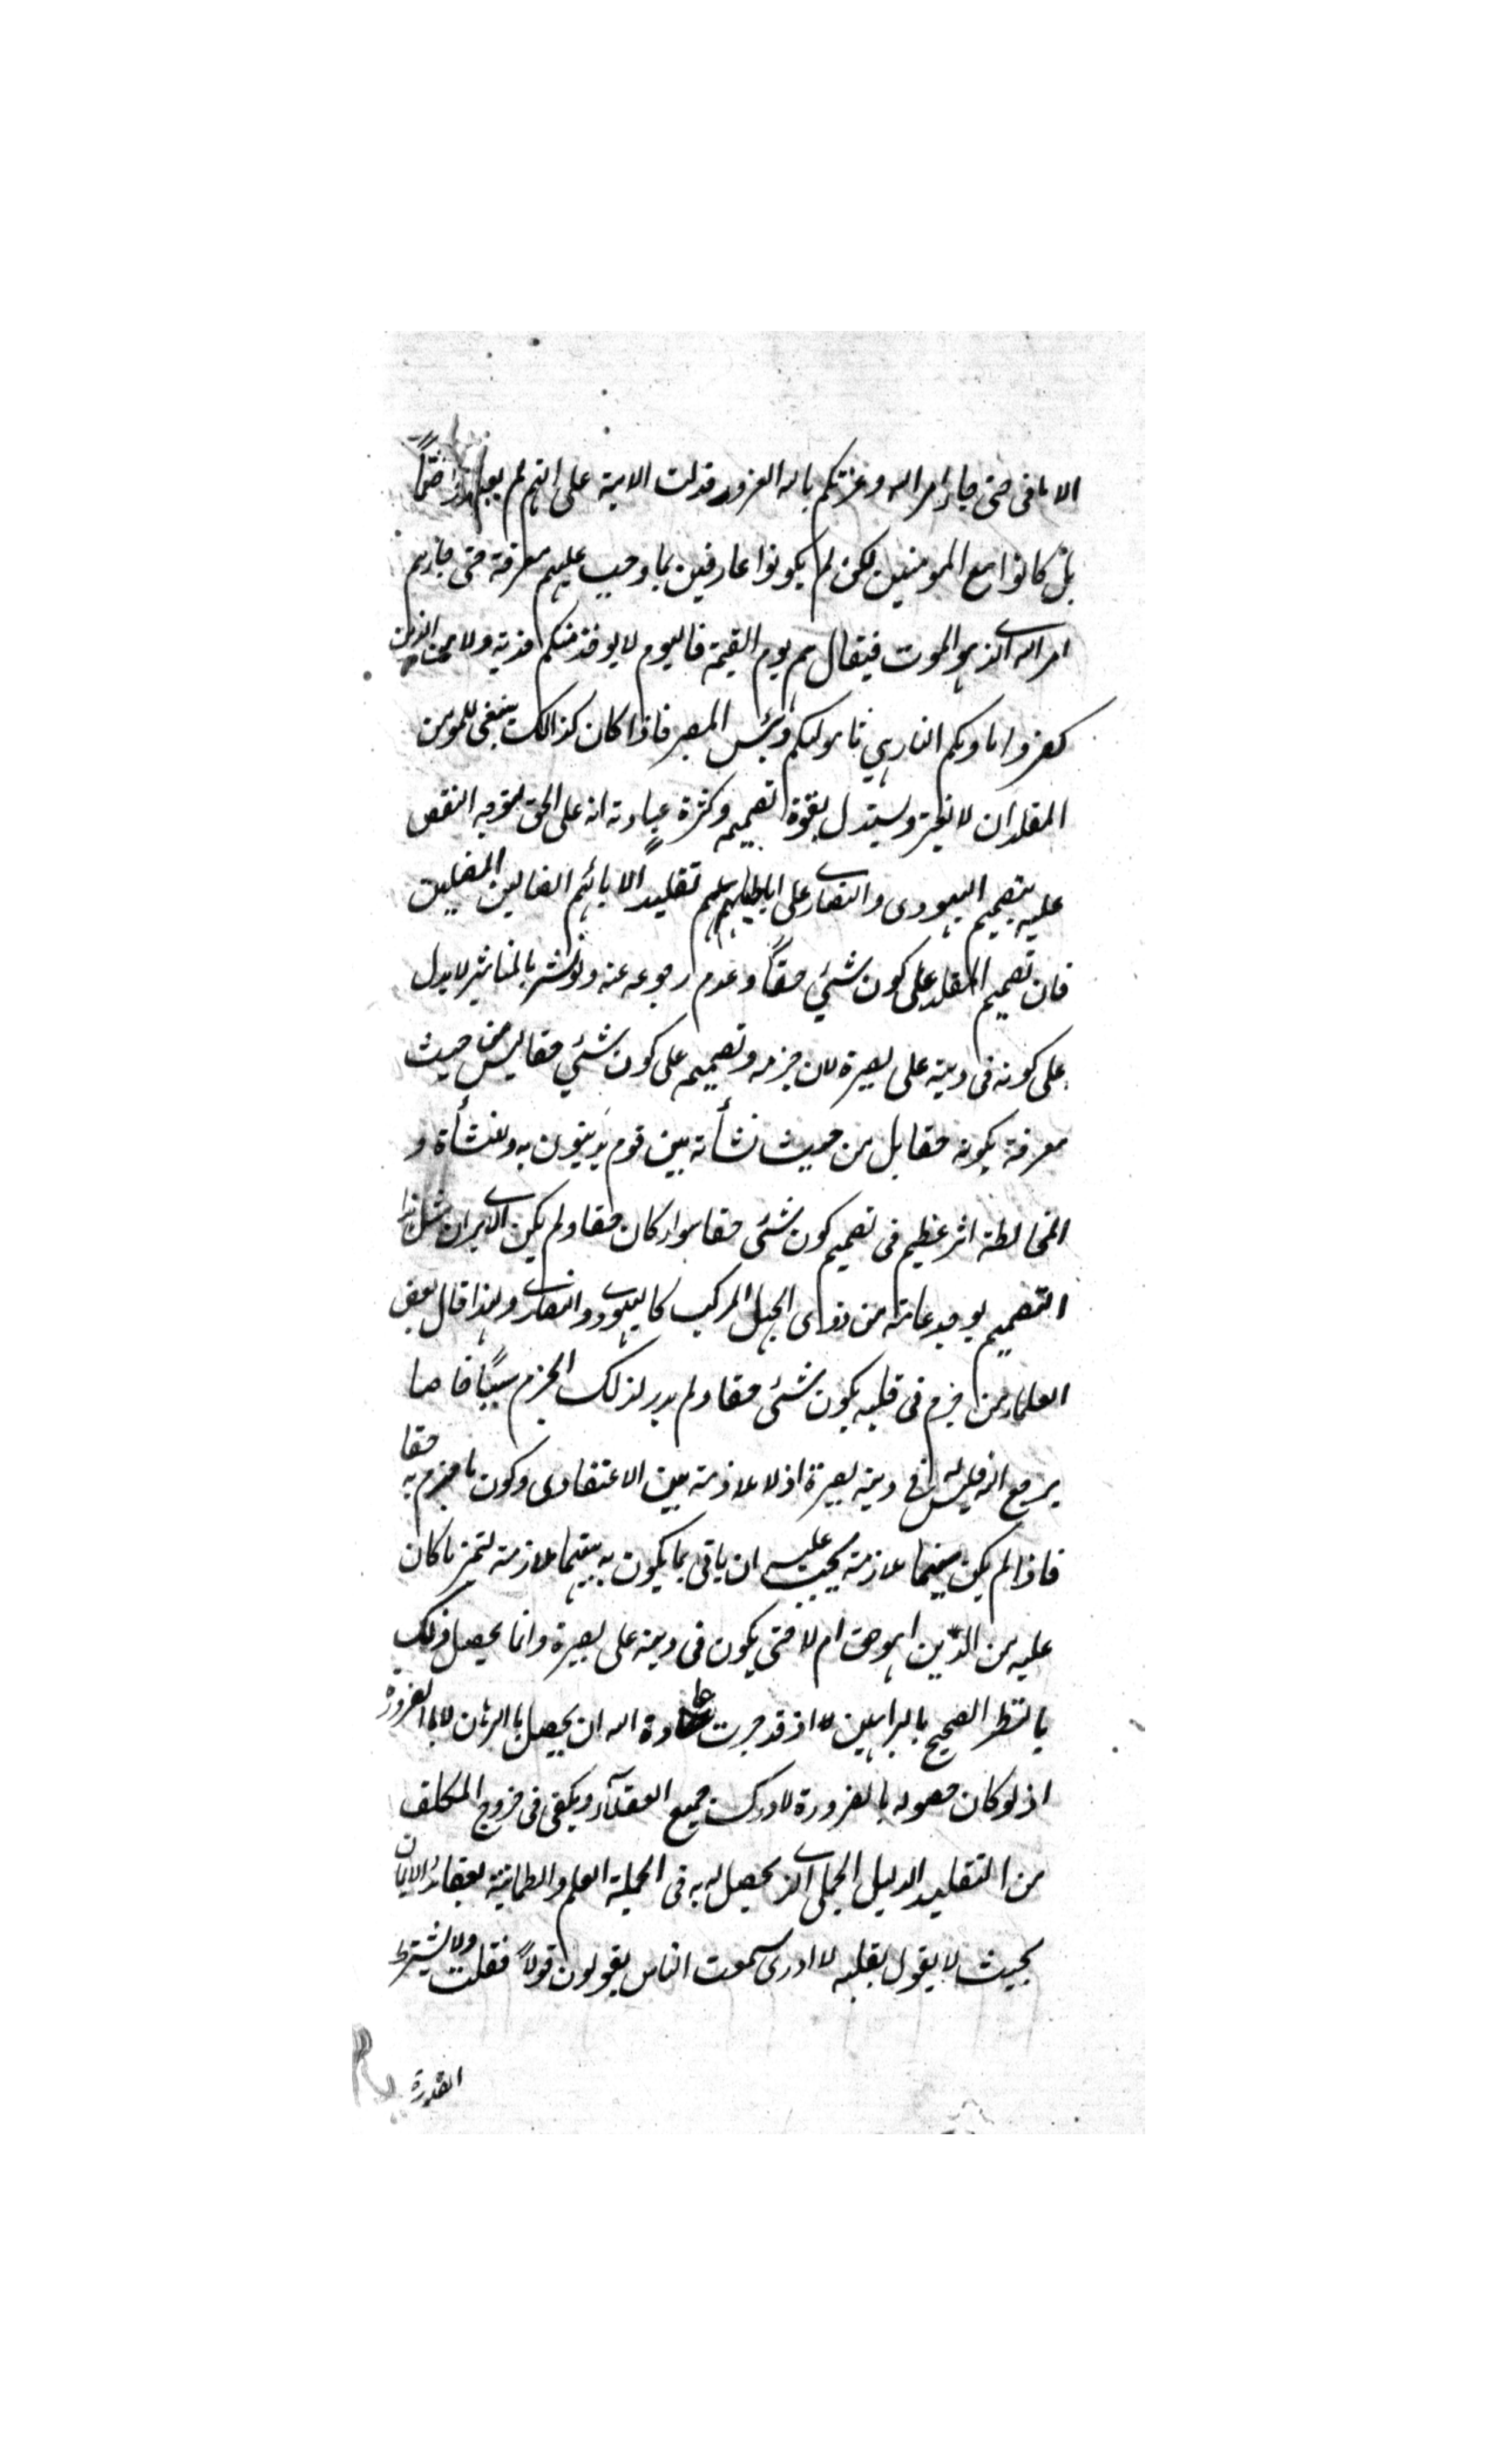 الامانى حتى جاء امر الله وغرتكم بالله الغرور فدلت الاية على انهم لم يعبدوا صنمًا
بل كانوا مع المومنين لكن لم يكونوا عارفين بما وجب عليهم معرفة حتى جاءهم
امر الله الذى هو الموت فيقال لهم يوم القيمة فاليوم لا يوخذ منكم فدية ولا من الذين
كفروا ماويكم النار هي مأموليكم وبئس المصير فاذا كان كذالك ينبغى للمومن
المقلد ان لا يغتر ويستدل بقوة تصميمه وكثرة عبادته انه على الحق لتوجه النقض
عليه بتصميم اليهودى والنصارى على اباطيلهم تقليدًا لابائهم الضالين المضلين
فان تصميم المقلد على كون شئي حقًا وعدم رجوعه عنه ولو نشر بالمناشير لا يدل
على كونه فى دينه على بصيرة لان جزمه وتصميمه على كون شئي حقا ليس من حيث
معرفة بكونه حقا بل من حيث نشأته بين قوم يدينون به وللنشأة و
المخالطة اثر عظيم فى تصميم كون شئى حقا سواء كان حقا ولم يكن الا يرى ان مثل هذا
التصميم يوجد عامته من ذوى الجهل المركب كاليهود والنصارى ولهذا قال بعض
العلماء من جزم فى قلبه بكون شئى حقا ولم يدر لذلك الجزم سببًا خاصا
يرجع اليه فليس له فى دينه بصيرة اذ لا ملازمة بين الاعتقادى وكون ما جزم به حقا
فاذا لم يكن بينهما ملازمة يجب عليه ان ياتى بما يكون به بينهما ملازمة لتميز ما كان
عليه من الدّين اهو حق ام لا حتى يكون فى دينه على بصيرة وانما يحصل ذلك
بالنظر الصحيح بالبراهين لا اذ قد جرت عادة الله ان يحصل بالبرهان لا بالضرورة
اذ لو كان حصوله بالضرورة لادركت جميع العقلآء ويكفى فى خروج المكلف
من التقليد الدليل الجملى الذى يحصل له به فى الجملة العلم والطمانينة بعقائد الايمان
بحيث لا يقول بقلبه لا ادرى سمعت الناس يقولون قولًا فقلت ولا يشترط
القدرة